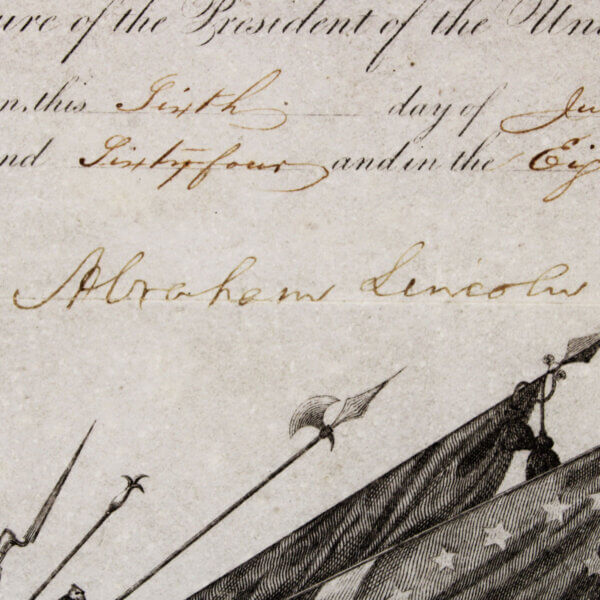 ure of the President of the Un
n, this Sixth day of Ju
nd Sixty four and in the Eig
Abraham Lincoln